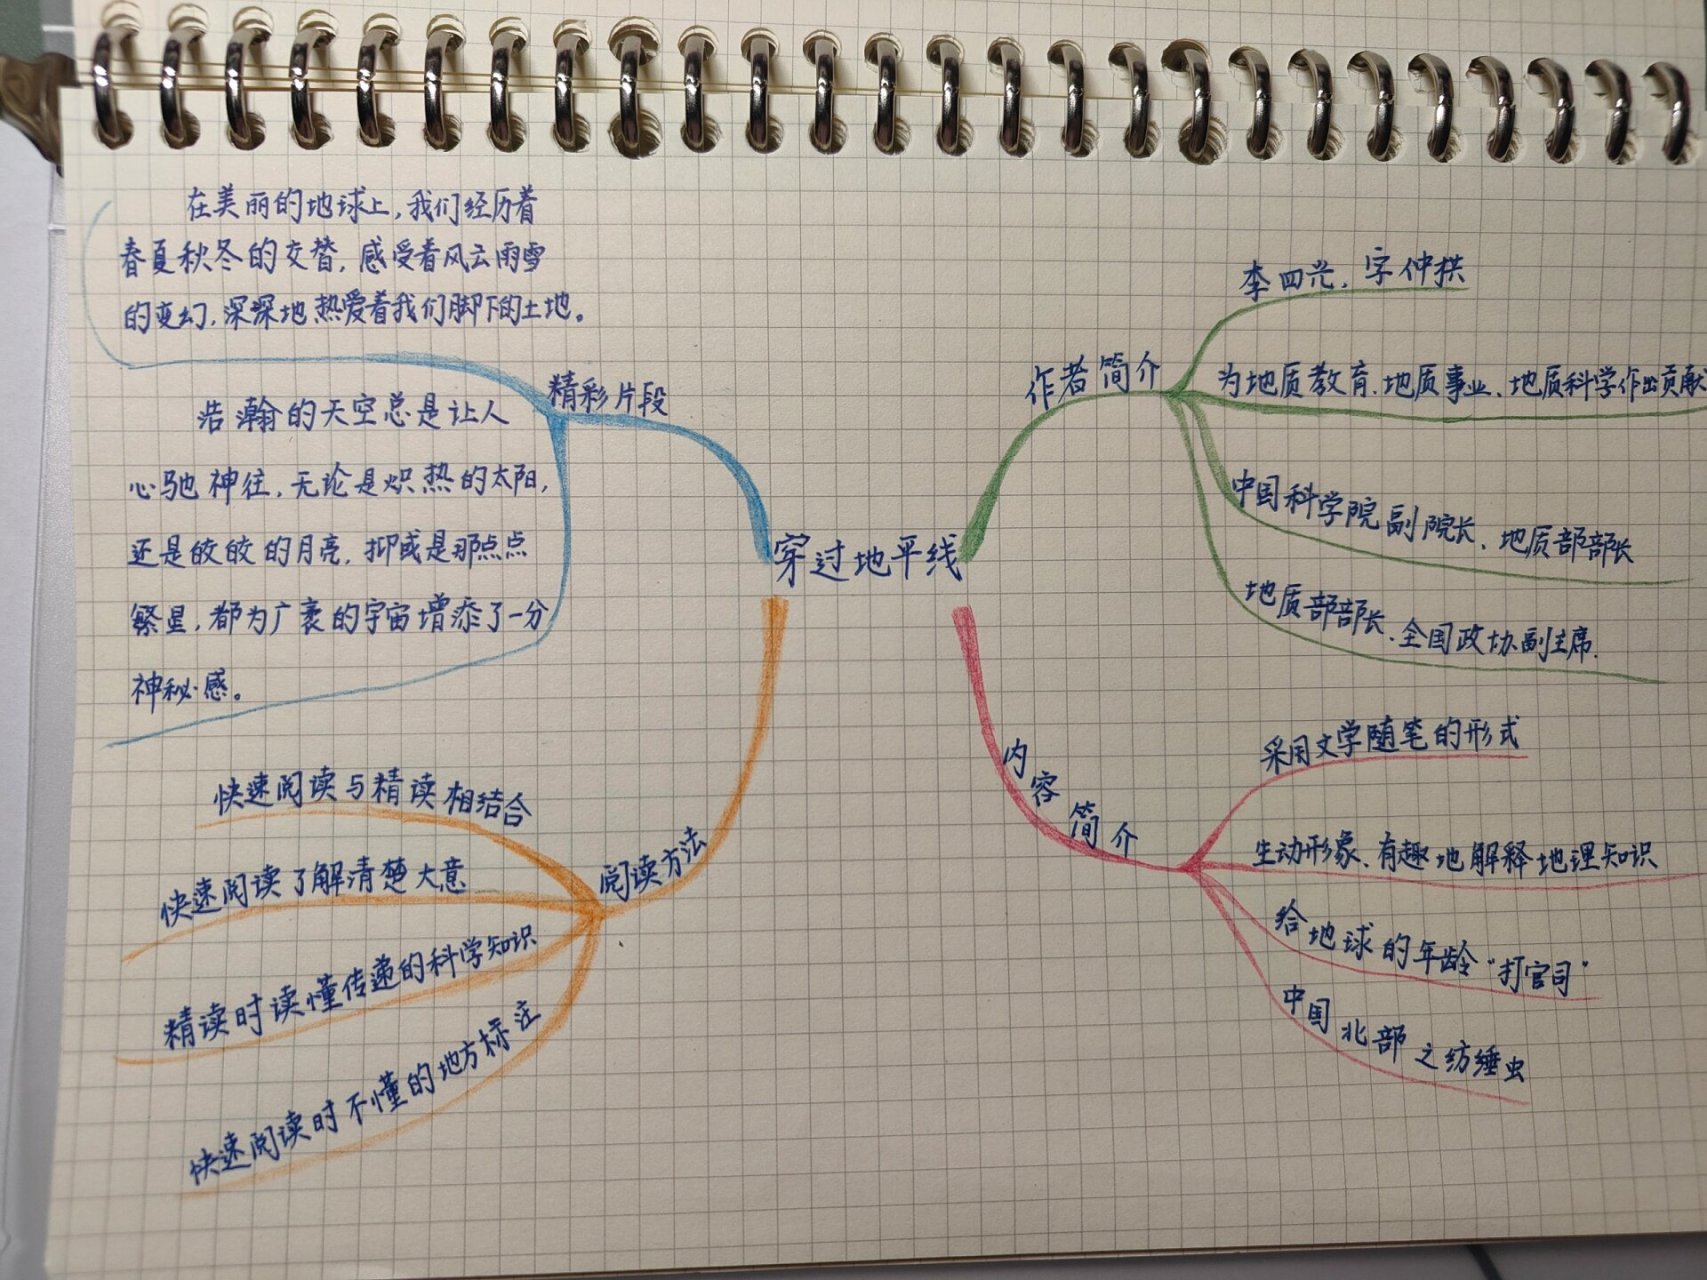 在美丽的地球上，我们经历着
春夏秋冬的交替，感受着风云雨雪
的变幻，深深地热爱着我们脚下的土地。
精彩片段
浩瀚的天空总是让人
心驰神往，无论是炽热的太阳，
还是皎皎的月亮，抑或是那点点
繁星，都为广袤的宇宙增添了一分
神秘感。
穿过地平线
作者简介
李四光，字仲拱
为地质教育、地质事业、地质科学作出贡献
中国科学院副院长、地质部部长
地质部部长、全国政协副主席.
内容简介
采用文学随笔的形式
生动形象、有趣地解释地理知识
给地球的年龄“打官司”
中国北部之纺缍虫
阅读方法
快速阅读与精读相结合
快速阅读了解清楚大意
精读时读懂传递的科学知识
快速阅读时不懂的地方标注